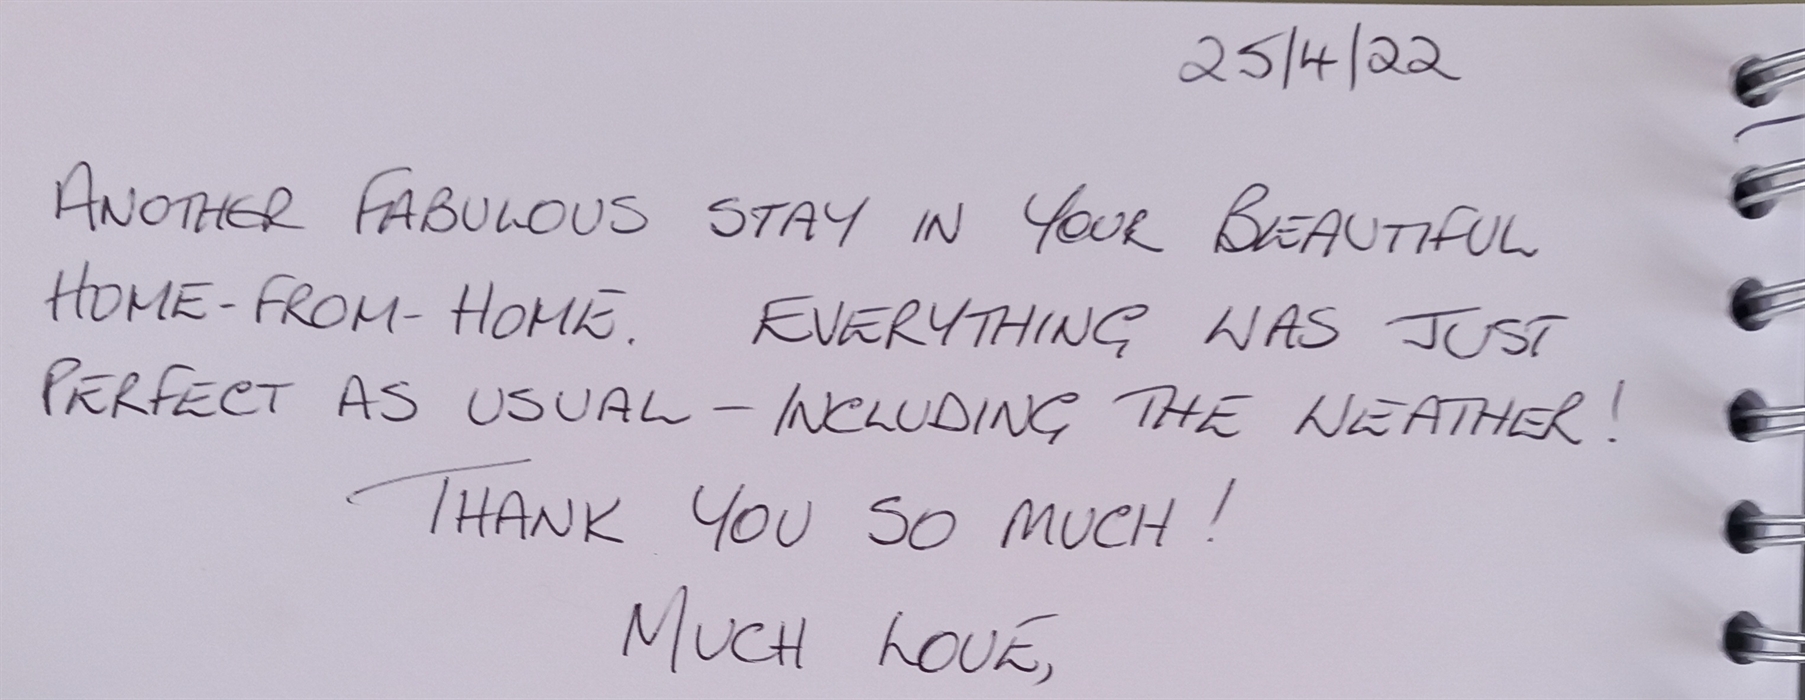 25/4/22
ANOTHER FABULOUS STAY IN YOUR BEAUTIFUL
HOME-FROM-HOME. EVERYTHING WAS JUST
PERFECT AS USUAL - INCLUDING THE WEATHER!
THANK YOU SO MUCH!
MUCH LOVE,